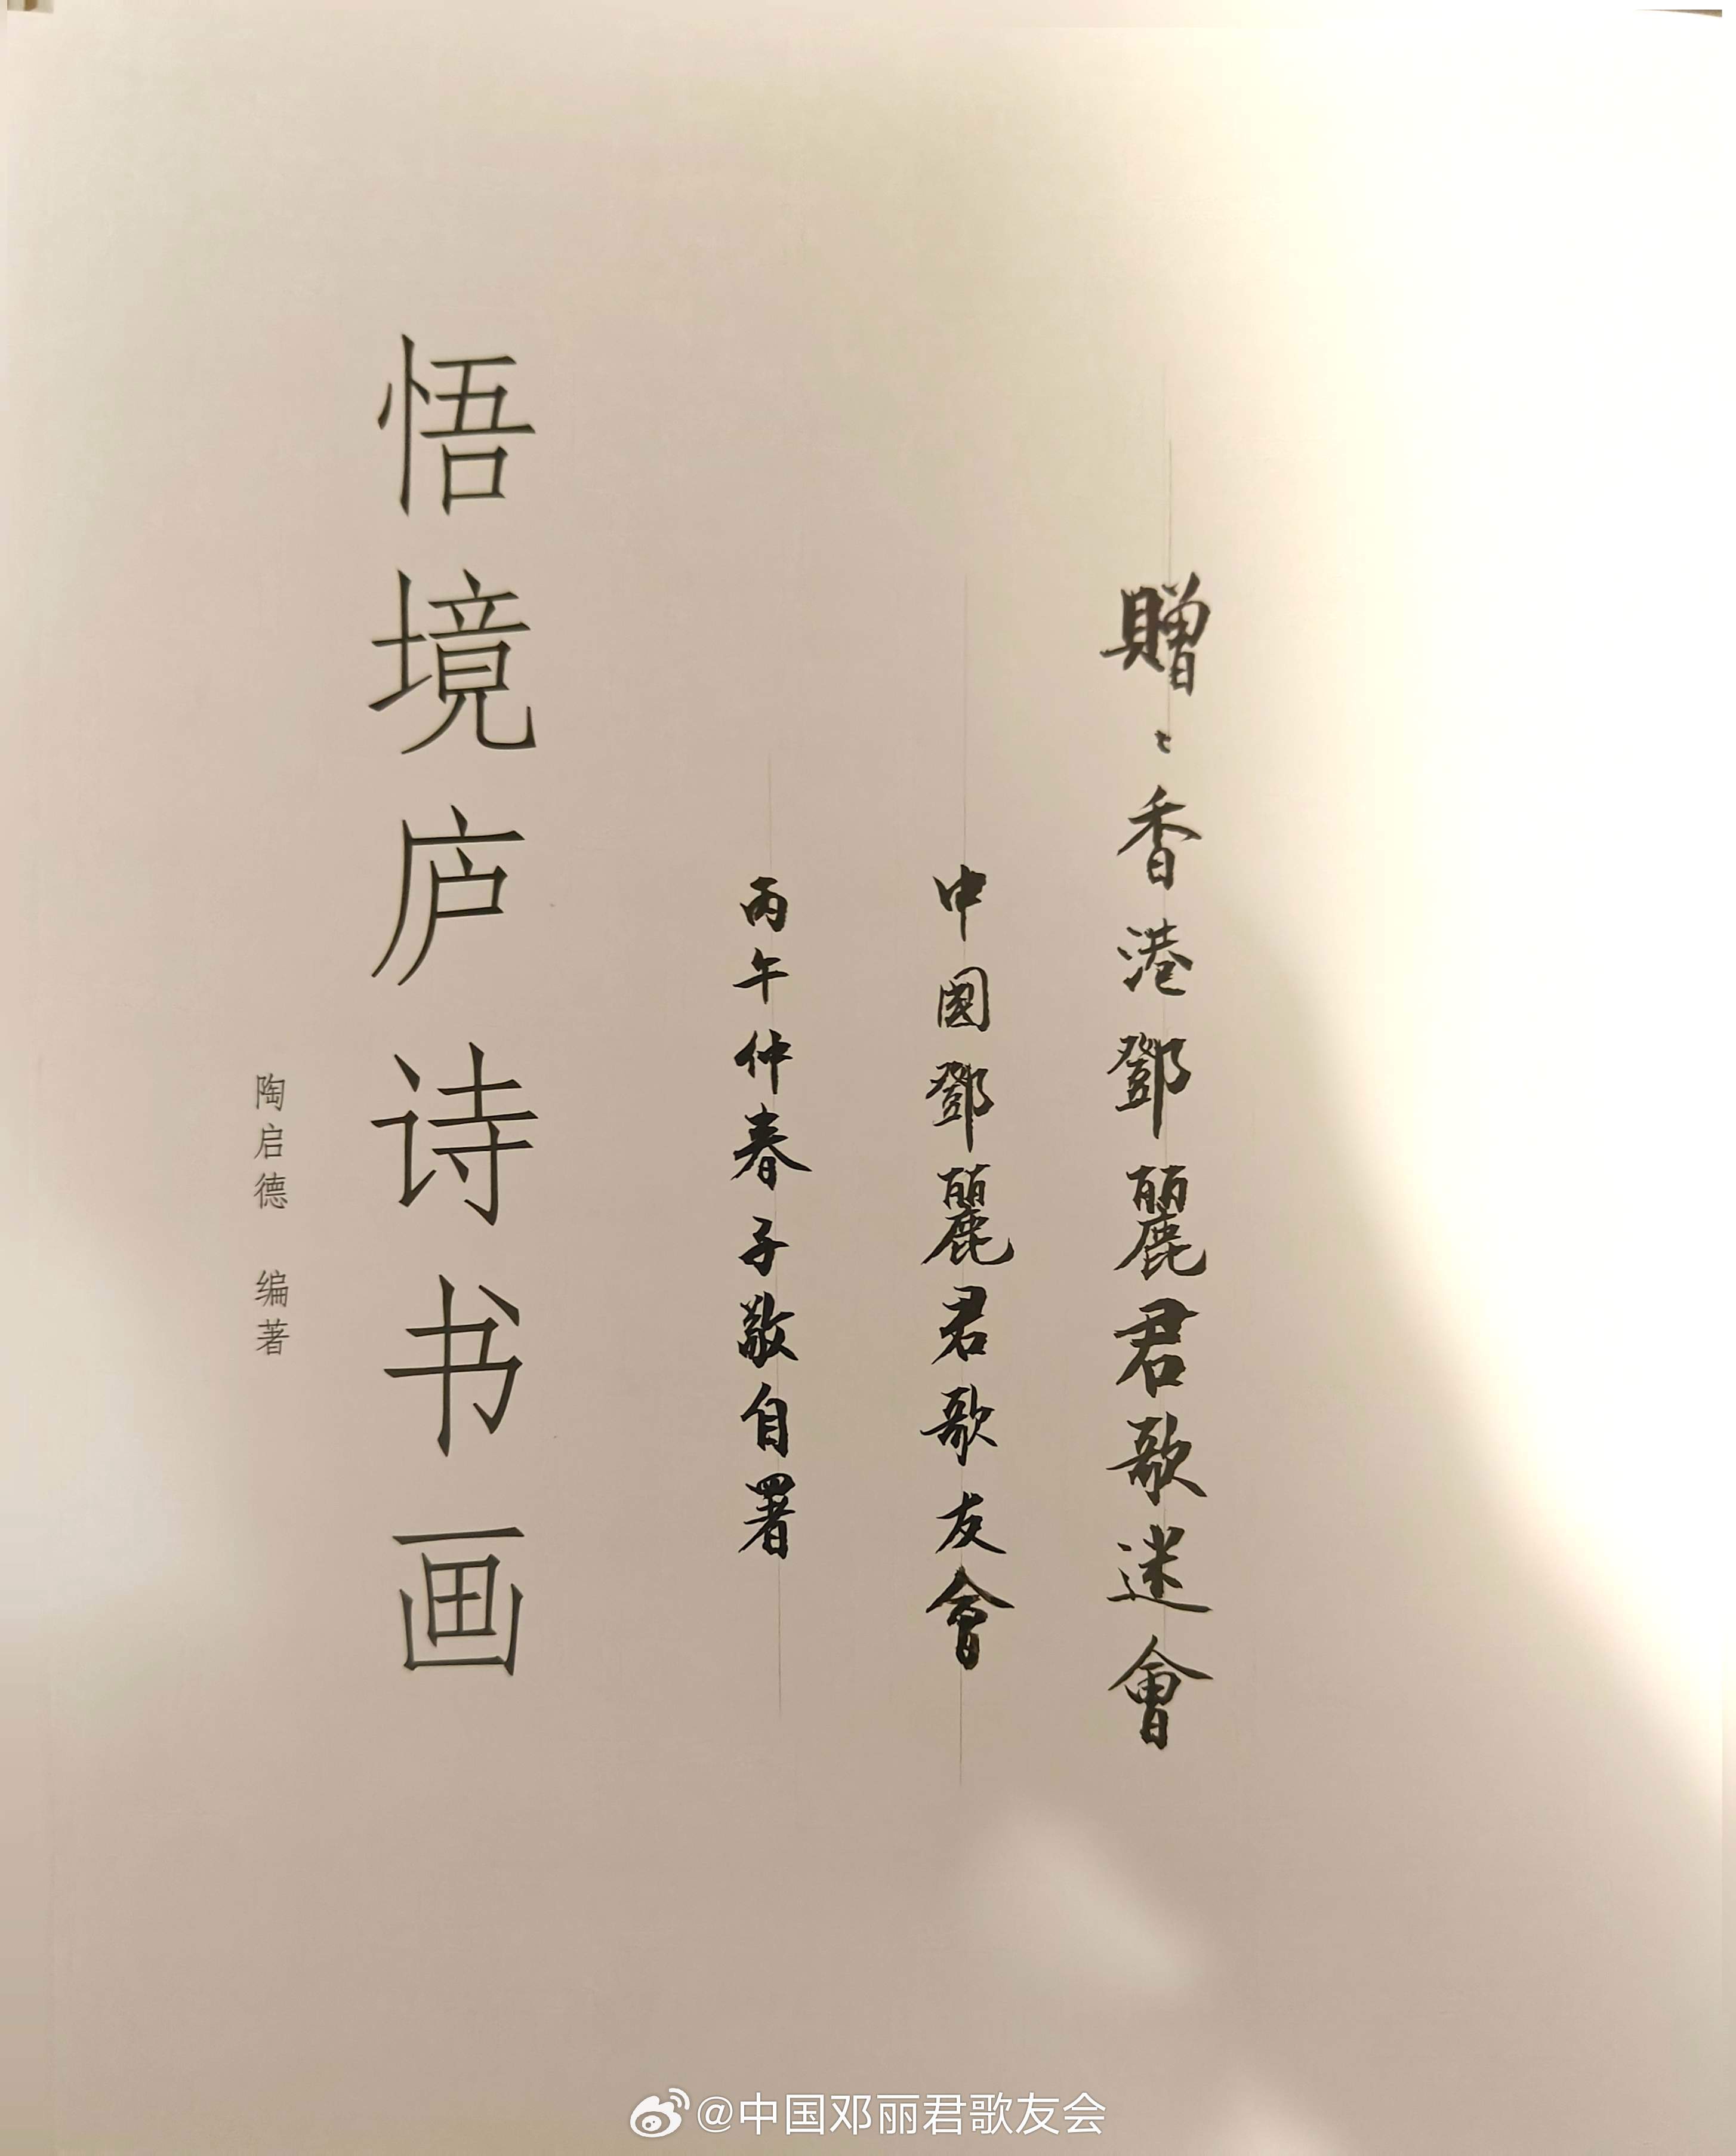 贈：香港鄧麗君歌迷會
中國鄧麗君歌友會
丙午仲春子敬自署
悟境庐诗书画
陶启德 编著
@中国邓丽君歌友会